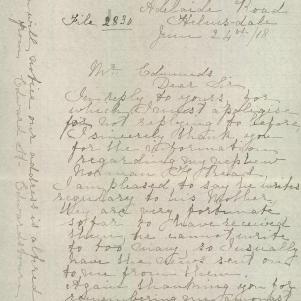 Adelaide Road
File 2830 Helmsdale
June 24th/18
Mr Edmunds
Dear Sir
In reply to yours for
which I must apologise
for not replying to before
I sincerely thank you
for the information
regarding my nephew
Norman
I am pleased to say he writes
regulary to his Mother.
We are very fortunate
so far to have received
them, he cannot write
to too many so I usually
have the news sent on
to me from them.
Again thanking you for
remembering
will notice our address is altered
from Edward St Edwardstown